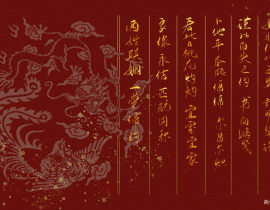 两姓联姻 一堂缔约
良缘永结 匹配同称
看此日桃花灼灼 宜室宜家
卜他年瓜瓞绵绵 尔昌尔炽
谨以白头之约 书向鸿笺